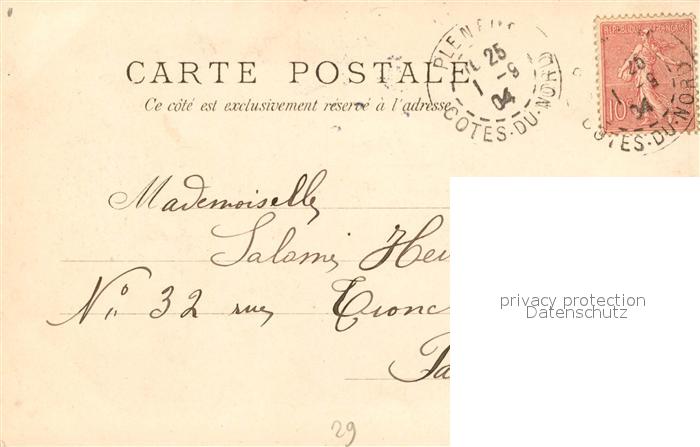 CARTE POSTALE
Ce côté est exclusivement réservé à l'adresse
PLENE
25
1 -9
04
CÔTES-DU-NORD
REPUBLIQUE FRANÇAISE
10
25
1 9
04
CÔTES-DU-NORD
Mademoiselle
Salomé
No 32 rue Tronc
Pa
privacy protection
Datenschutz
29